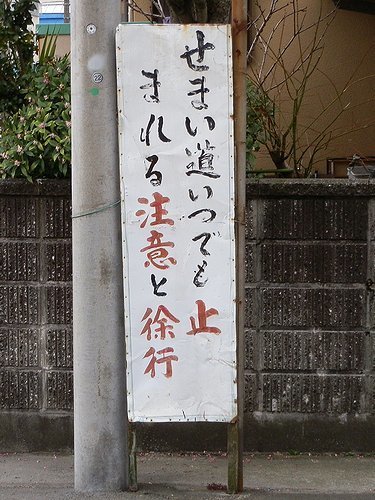 せまい道いつでも止
まれる注意と徐行
22